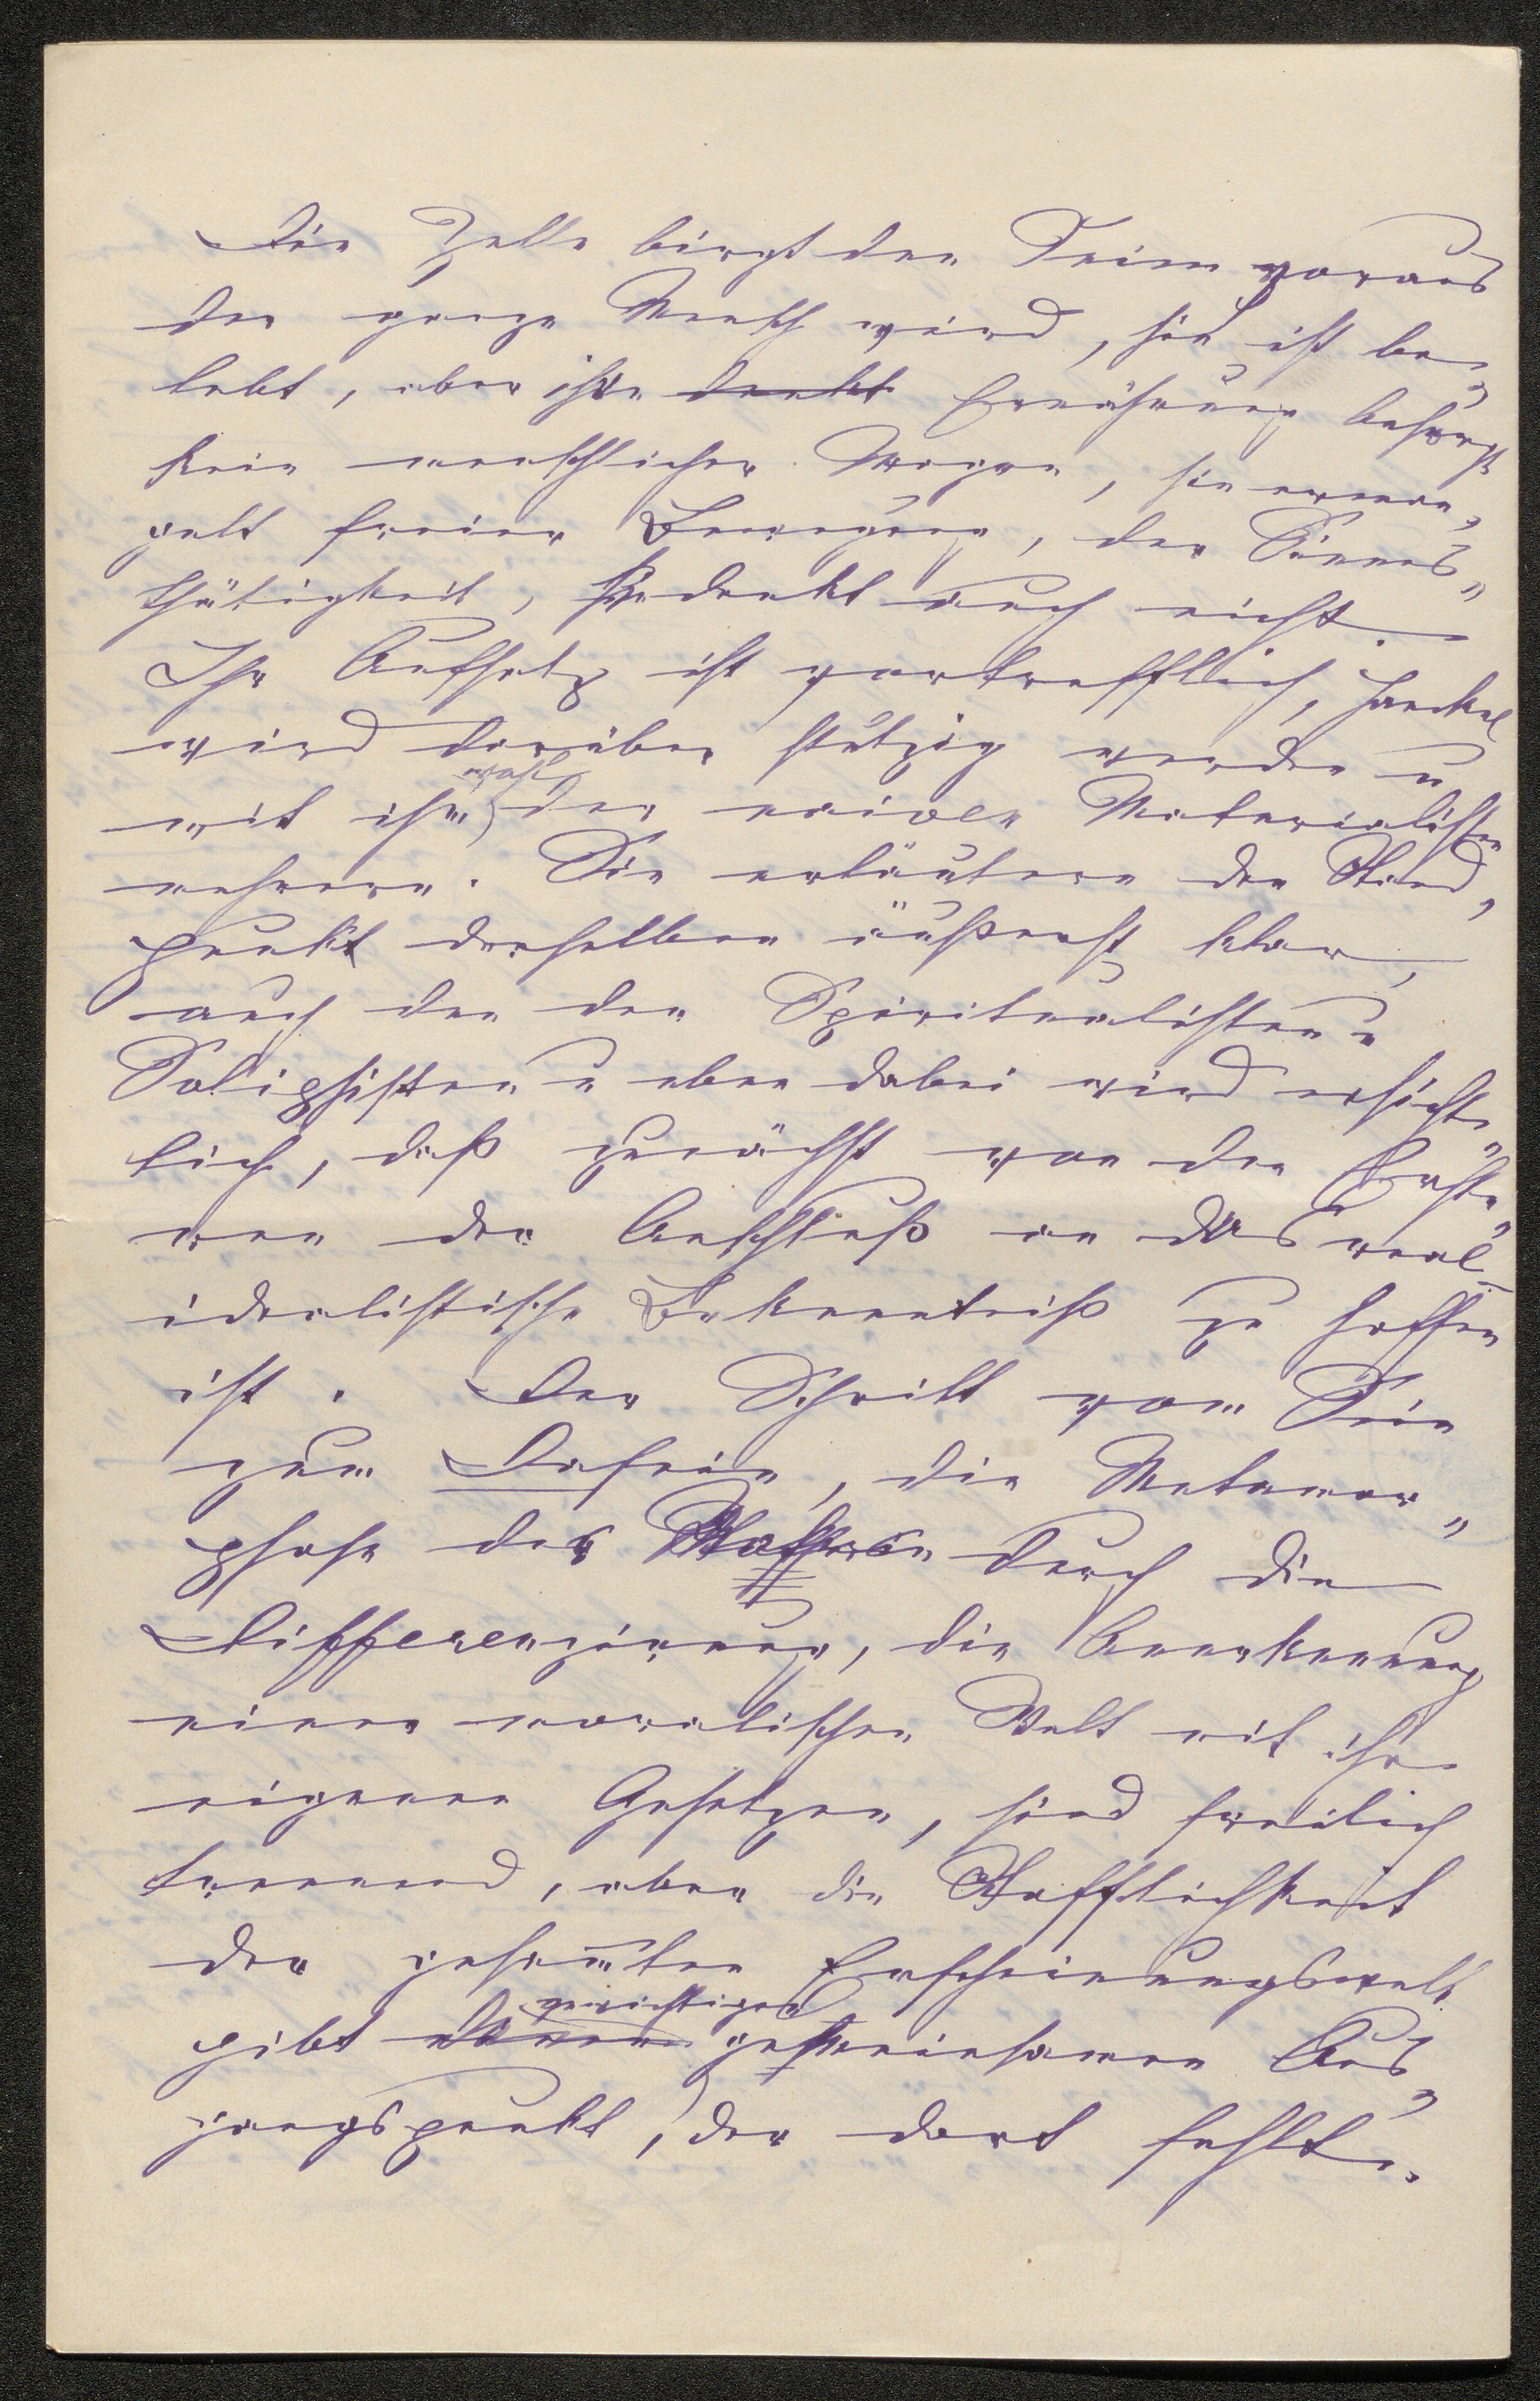 Die Zelle birgt den Keim woraus
der ganze Mensch wird, sie ist be„
lebt, aber ihre denkt Ernährung besorgt
kein menschlicher Magen, sie erman„
gelt freier Bewegung, der Sinnes„
thätigkeit, sie denkt auch nicht.
Ihr Aufsatz ist vortrefflich, Haeckel
wird darüber stutzig werden u
mit ihm wohl der naiven Materialisten
mehrere. Sie erläutern den Stand„
punkt derselben äußerst klar,
auch den der Spiritualisten u
Solipsisten u eben dabei wird ersicht„
lich, daß zunächst von den Erste„
ren der Anschluß an das real„
idealistische Bekenntniß zu hoffen
ist. Der Schritt vom Sein
zum Dasein, die Metamor„
phose des Stoffes durch die
Differenzierung, die Anerkennung
einer moralischen Welt mit ihren
eigenen Gesetzen, sind freilich
trennend, aber die Stofflichkeit
der gesam̅ten Erscheinungswelt
gibt einen gewichtigen gemeinsamen Aus„
gangspunkt, der dort fehlt.